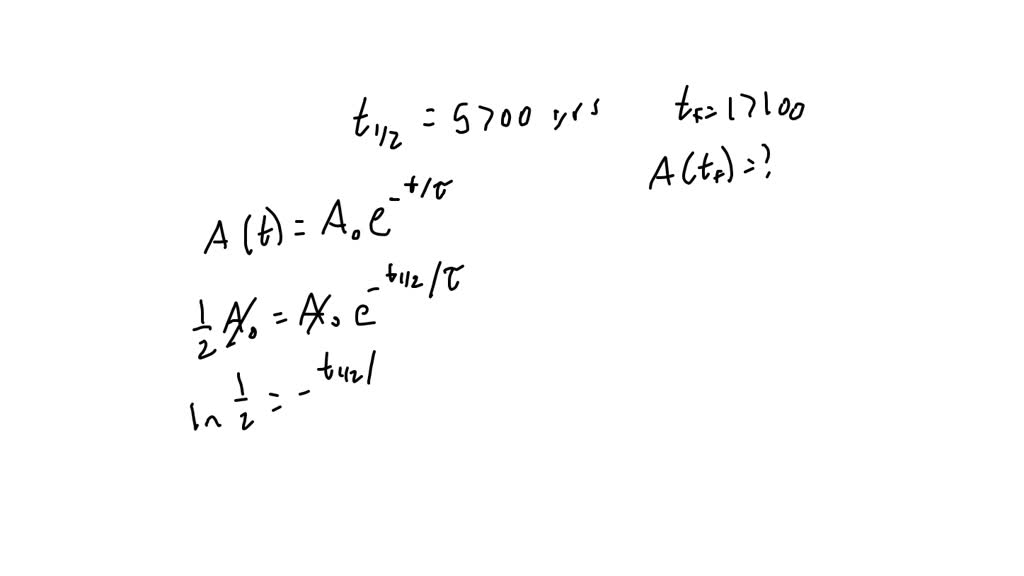 t_{1/2} = 5700 yrs t_f = 17100
A(t_f) = ?
A(t) = A_0 e^{-t/τ}
\frac{1}{2} A_0 = A_0 e^{-t_{1/2}/τ}
ln \frac{1}{2} = -t_{1/2}/